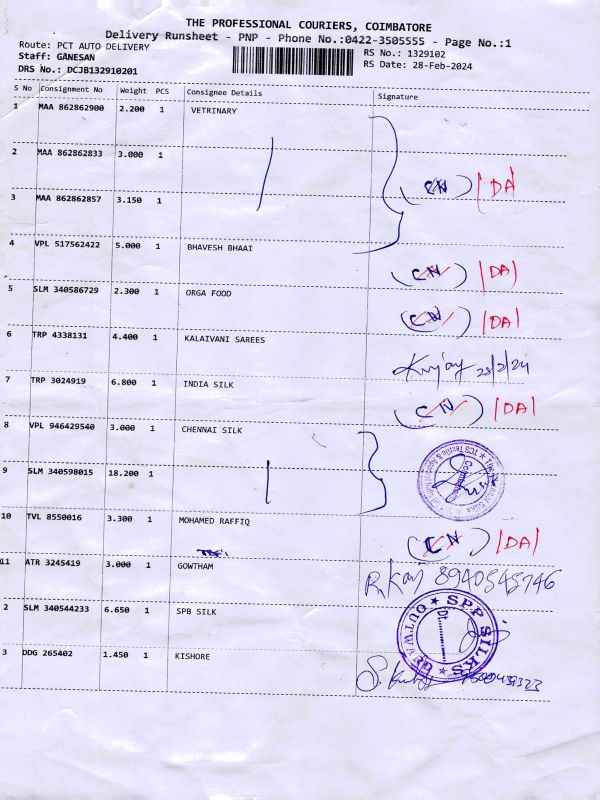 THE PROFESSIONAL COURIERS, COIMBATORE
Delivery Runsheet - PNP - Phone No.:0422-3505555 - Page No.:1
Route: PCT AUTO DELIVERY
RS No.: 1329102
Staff: GANESAN
RS Date: 28-Feb-2024
DRS No.: DCJB132910201
S No Consignment No Weight PCS Consignee Details Signature
1 MAA 862862900 2.200 1 VETRINARY
2 MAA 862862833 3.000 1
CN DA
3 MAA 862862857 3.150 1
4 VPL 517562422 5.000 1 BHAVESH BHAAI
CN DA
5 SLM 340586729 2.300 1 ORGA FOOD
CN DA
6 TRP 4338131 4.400 1 KALAIVANI SAREES
28/2/24
7 TRP 3024919 6.800 1 INDIA SILK
CN DA
8 VPL 946429540 3.000 1 CHENNAI SILK
9 SLM 340598015 18.200 1
10 TVL 8550016 3.300 1 MOHAMED RAFFIQ
CN DA
11 ATR 3245419 3.000 1 GOWTHAM
8940545746
2 SLM 340544233 6.650 1 SPB SILK
SPP SILKS
OUTWARD
Dt
3 DDG 265402 1.450 1 KISHORE